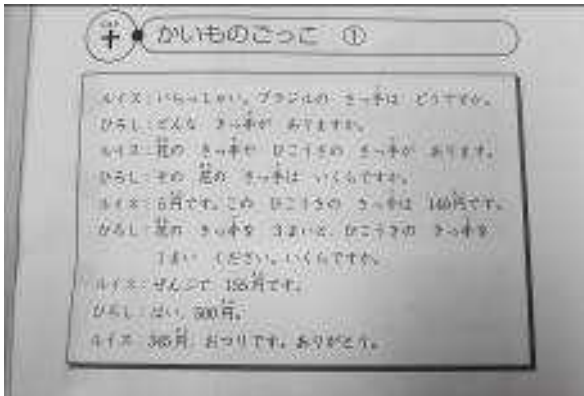 十 かいものごっこ ①
ルイス：いらっしゃい。ブラジルの きっ手は どうですか。
ひろし：どんな きっ手が ありますか。
ルイス：花の きっ手や ひこうきの きっ手が あります。
ひろし：その 花の きっ手は いくらですか。
ルイス：5円です。この ひこうきの きっ手は 140円です。
ひろし：花の きっ手を 3まいと、ひこうきの きっ手を
1まい ください。いくらですか。
ルイス：ぜんぶで 155円です。
ひろし：はい、500円。
ルイス：345円 おつりです。ありがとう。